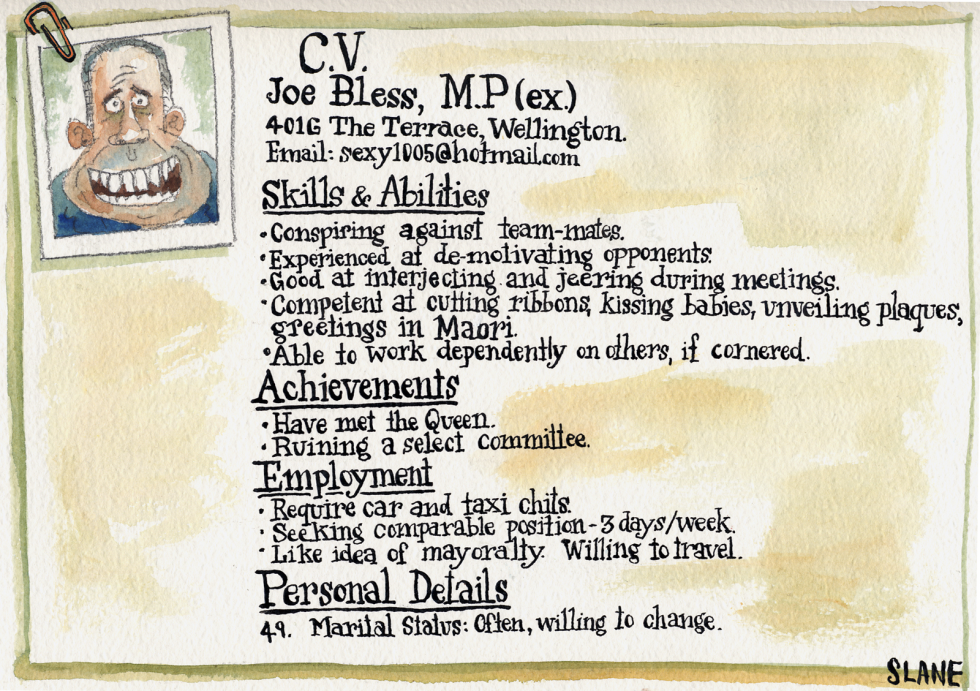 C.V.
Joe Bless, M.P (ex.)
401G The Terrace, Wellington.
Email: sexy1005@hotmail.com
Skills & Abilities
• Conspiring against team-mates.
• Experienced at de-motivating opponents.
• Good at interjecting and jeering during meetings.
• Competent at cutting ribbons, kissing babies, unveiling plaques,
greetings in Maori.
• Able to work dependently on others, if cornered.
Achievements
• Have met the Queen.
• Ruining a select committee.
Employment
• Require car and taxi chits.
• Seeking comparable position - 3 days/week.
• Like idea of mayoralty. Willing to travel.
Personal Details
49. Marital Status: Often, willing to change.
SLANE